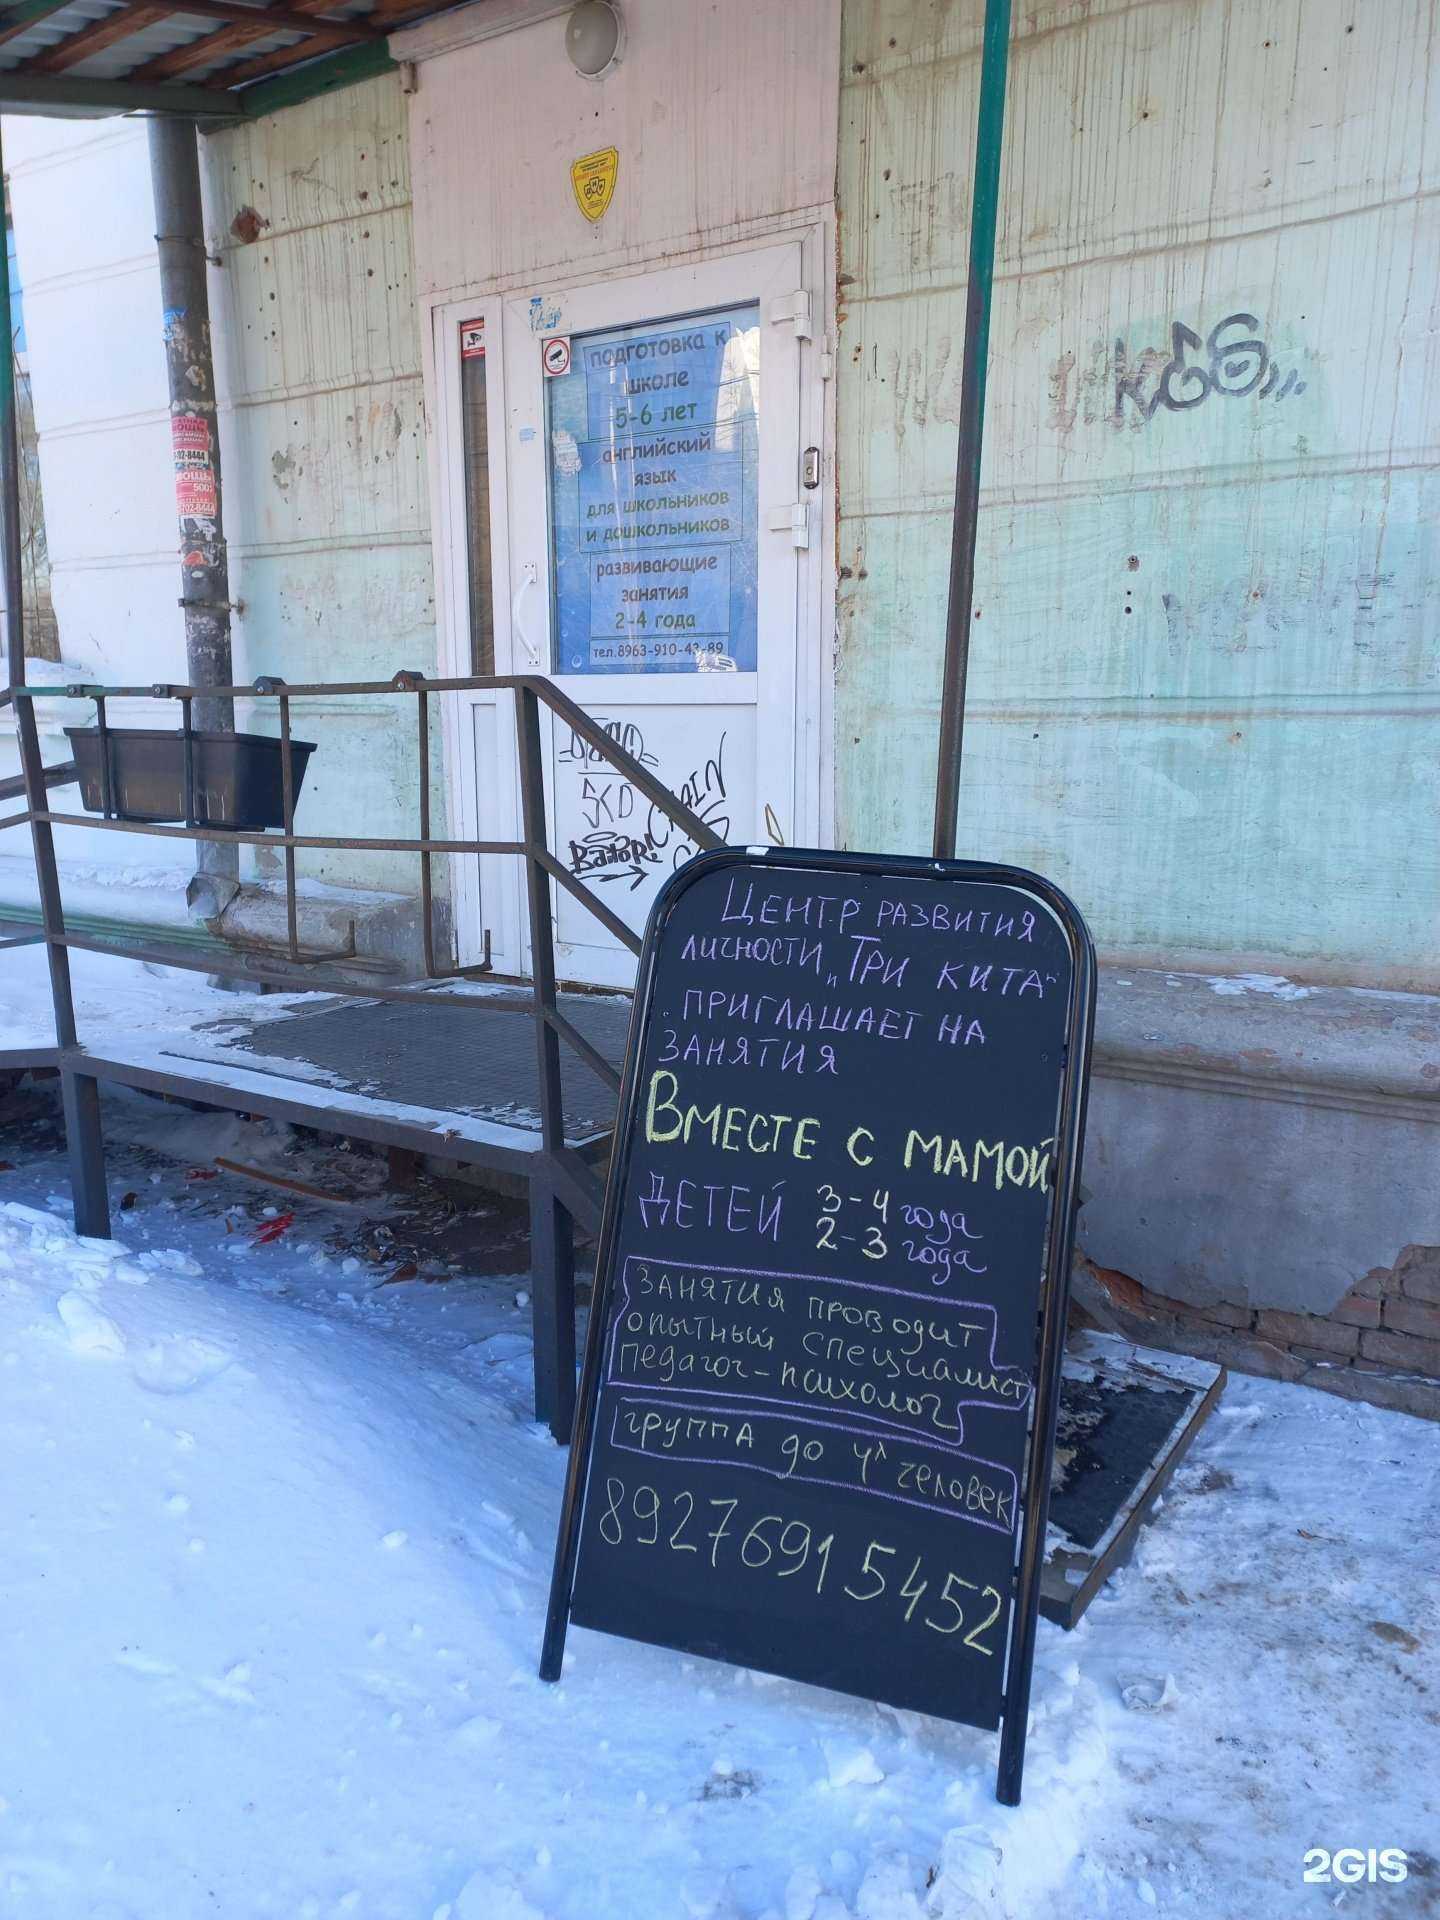 подготовка к
школе
5-6 лет
английский
язык
для школьников
и дошкольников
развивающие
занятия
2-4 года
тел.8963-910-43-89
KGS
SKD
CHAIN
Центр развития
личности „Три кита"
приглашает на
занятия
Вместе с мамой
детей 3-4 года
2-3 года
Занятия проводит
опытный специалист
педагог-психолог
группа до 4х человек
89276915452
2GIS